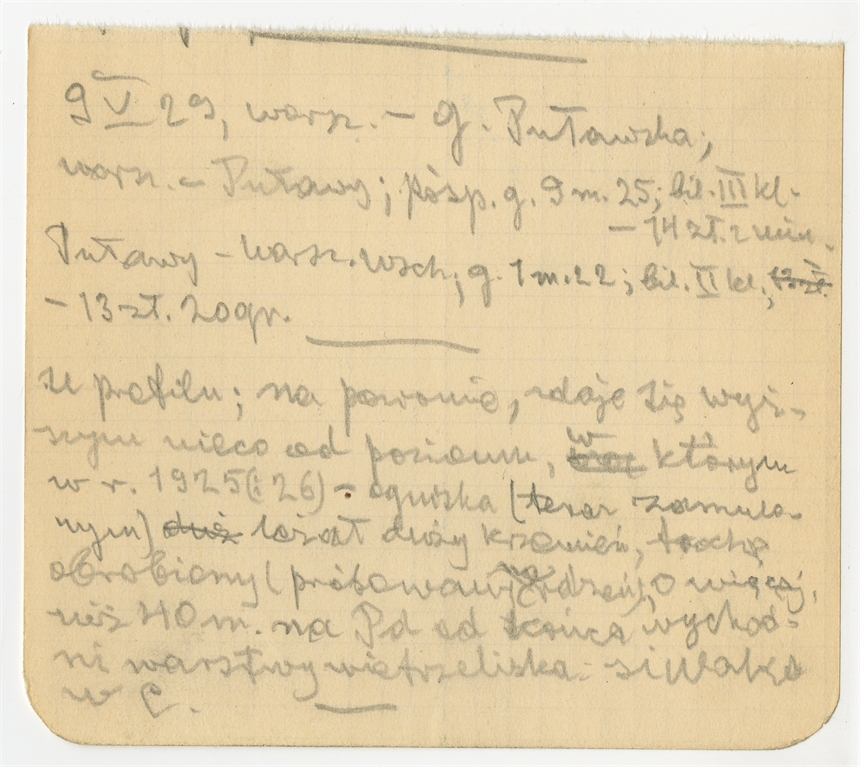 9 V 29, warsz. – g. Puławska;
warsz. – Puławy; pósp. g. 9 m. 25; bil. III kl.
– 14 zł. z min.
Puławy – warsz. wsch; g. 1 m. 22; bil. II kl.,
– 13 zł. 20 gr.
ze profilu; na poziomie, zdaje się wyż-
szym nieco od poziomu, w którym
w r. 1925 (i 26) – ogniska (teraz zamula-
nym) leżał duży krzemień, trochę
obrobiony (próbowany na rdzeń), o więcej,
niż 40 m. na Pd od końca wychod-
ni warstwy wietrzeliska
w C.